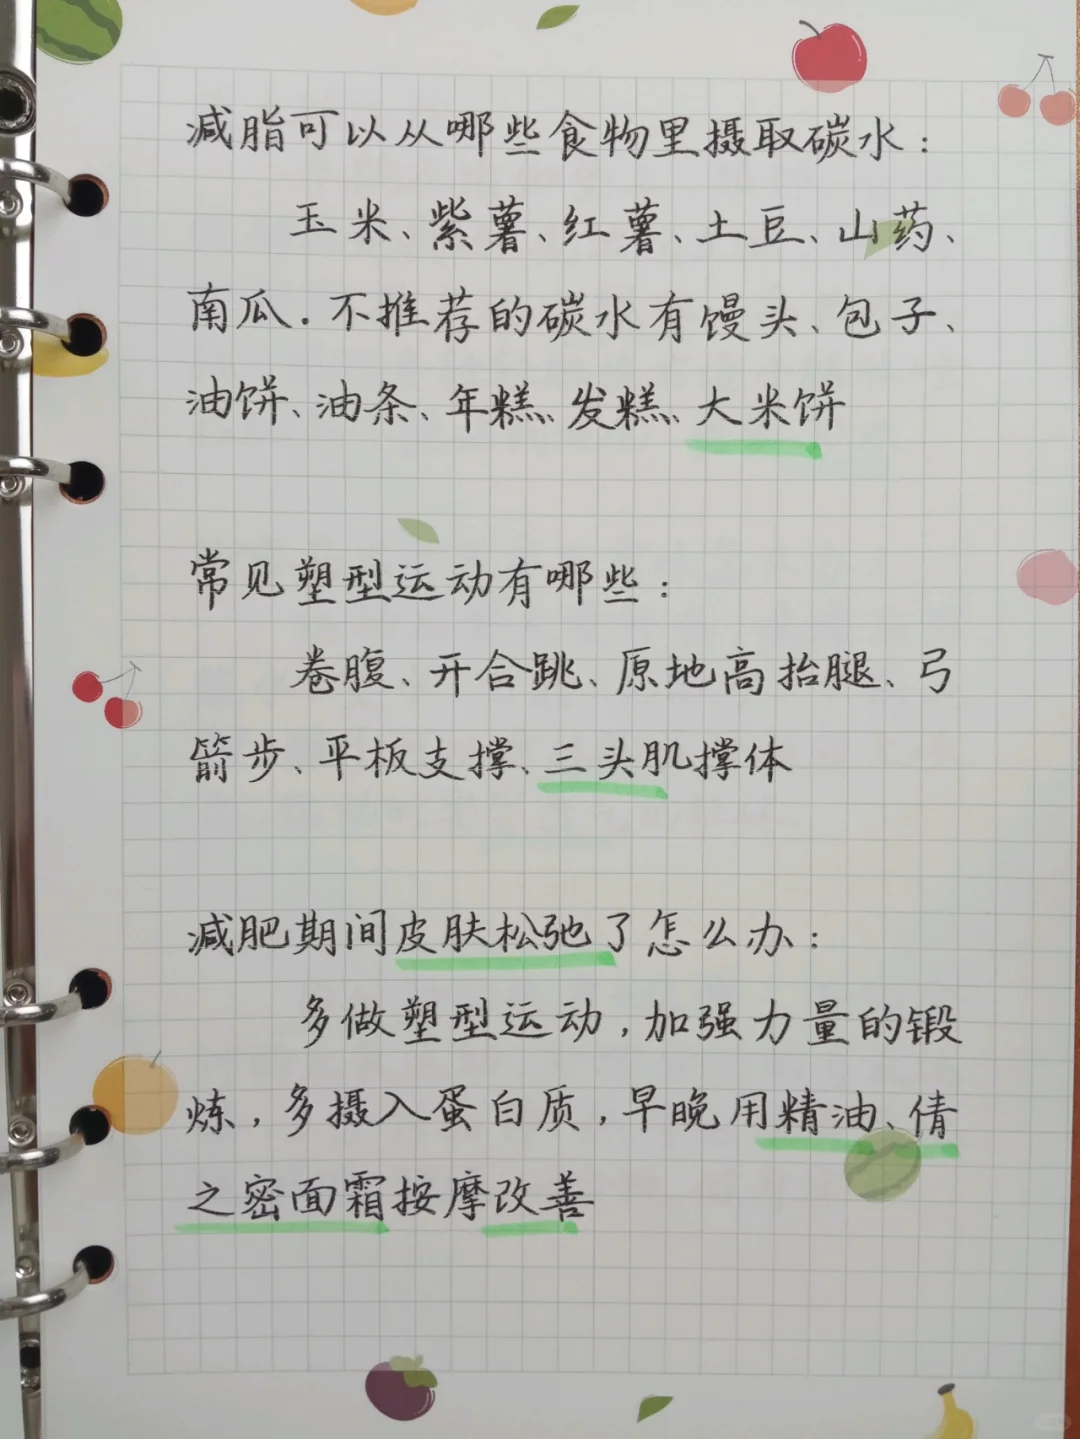 减脂可以从哪些食物里摄取碳水：
玉米、紫薯、红薯、土豆、山药、
南瓜．不推荐的碳水有馒头、包子、
油饼、油条、年糕、发糕、大米饼
常见塑型运动有哪些：
卷腹、开合跳、原地高抬腿、弓
箭步、平板支撑、三头肌撑体
减肥期间皮肤松弛了怎么办：
多做塑型运动，加强力量的锻
炼，多摄入蛋白质，早晚用精油、倩
之密面霜按摩改善